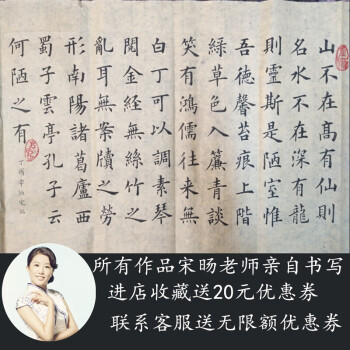 山不在髙有仙則
名水不在深有龍
則靈斯是陋室惟
吾徳馨苔痕上階
綠草色入簾青談
笑有鴻儒往來無
白丁可以調素琴
閱金経無絲竹之
亂耳無案牘之勞
形南陽諸葛廬西
蜀子雲亭孔子云
何陋之有
丁酉年
所有作品宋旸老师亲自书写
进店收藏送20元优惠券
联系客服送无限额优惠券